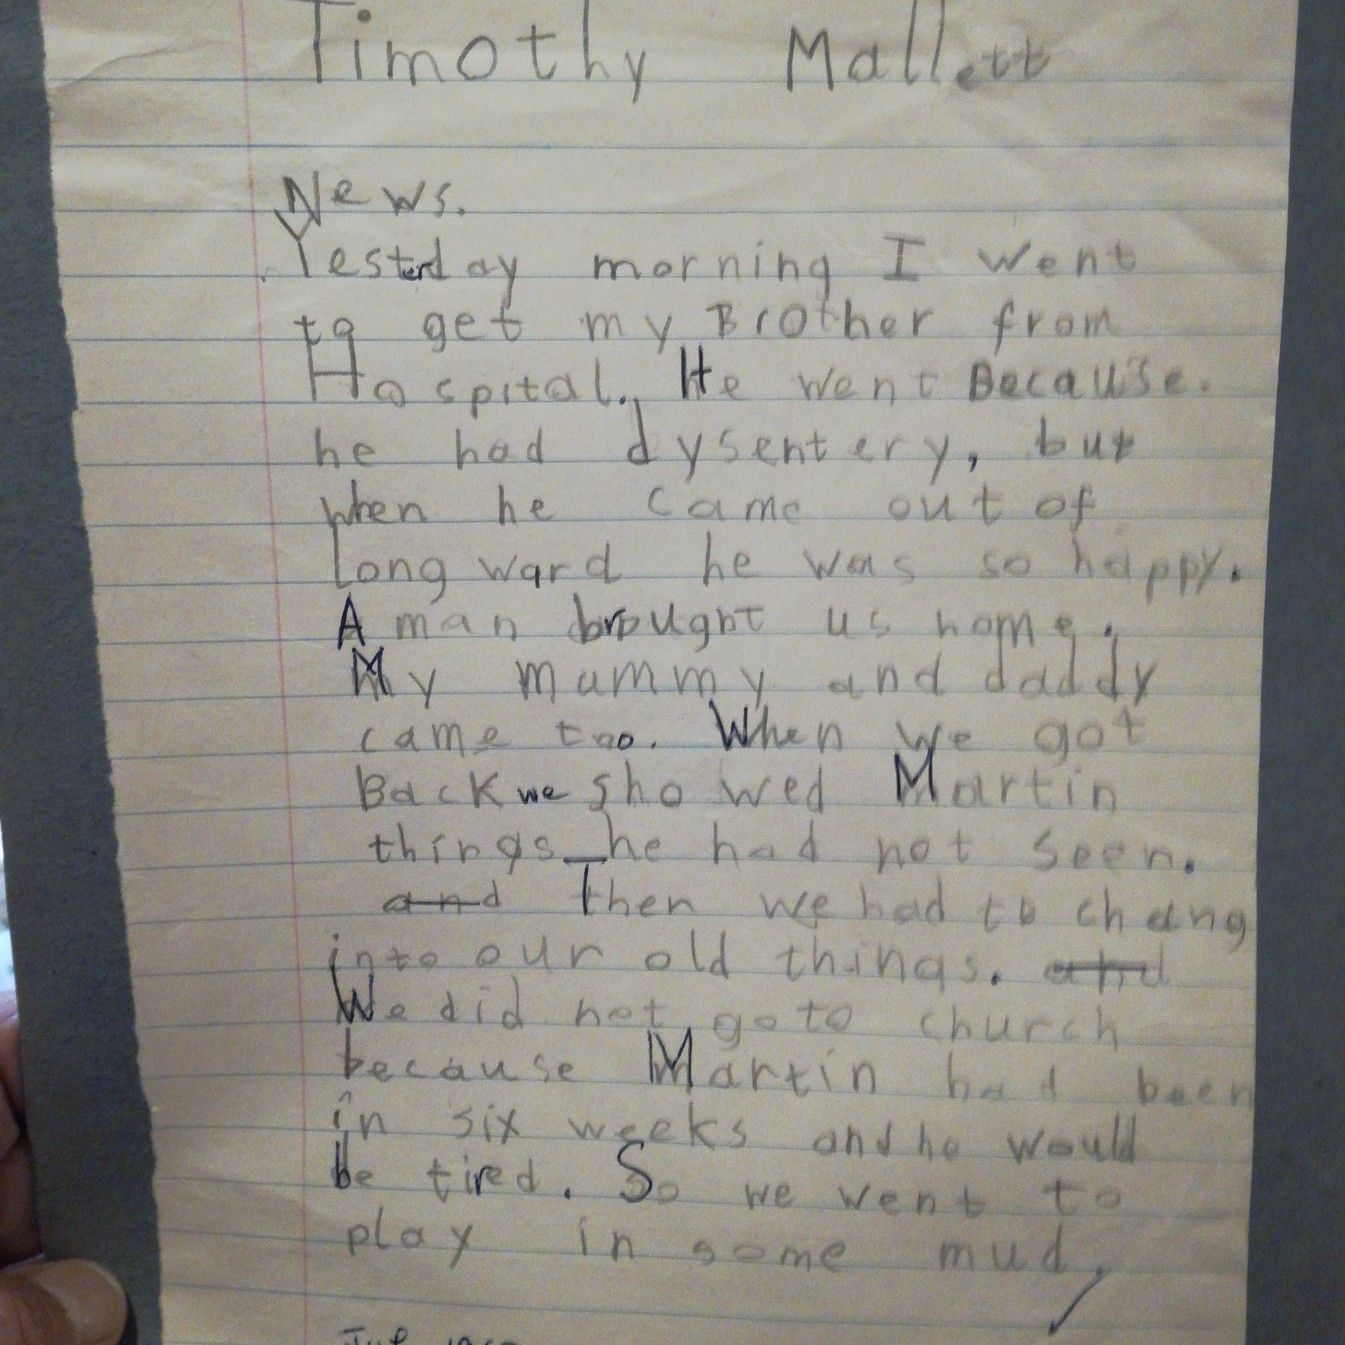 Timothy Mallett
News.
Yesterday morning I went
to get my Brother from
Hospital. He went Because.
he had dysentery, but
when he came out of
Long ward he was so happy.
A man brought us home.
My mummy and daddy
came too. When we got
Back we showed Martin
things he had not seen.
and Then we had to chang
into our old things. and
We did not go to church
because Martin had been
in six weeks and he would
be tired. So we went to
play in some mud.